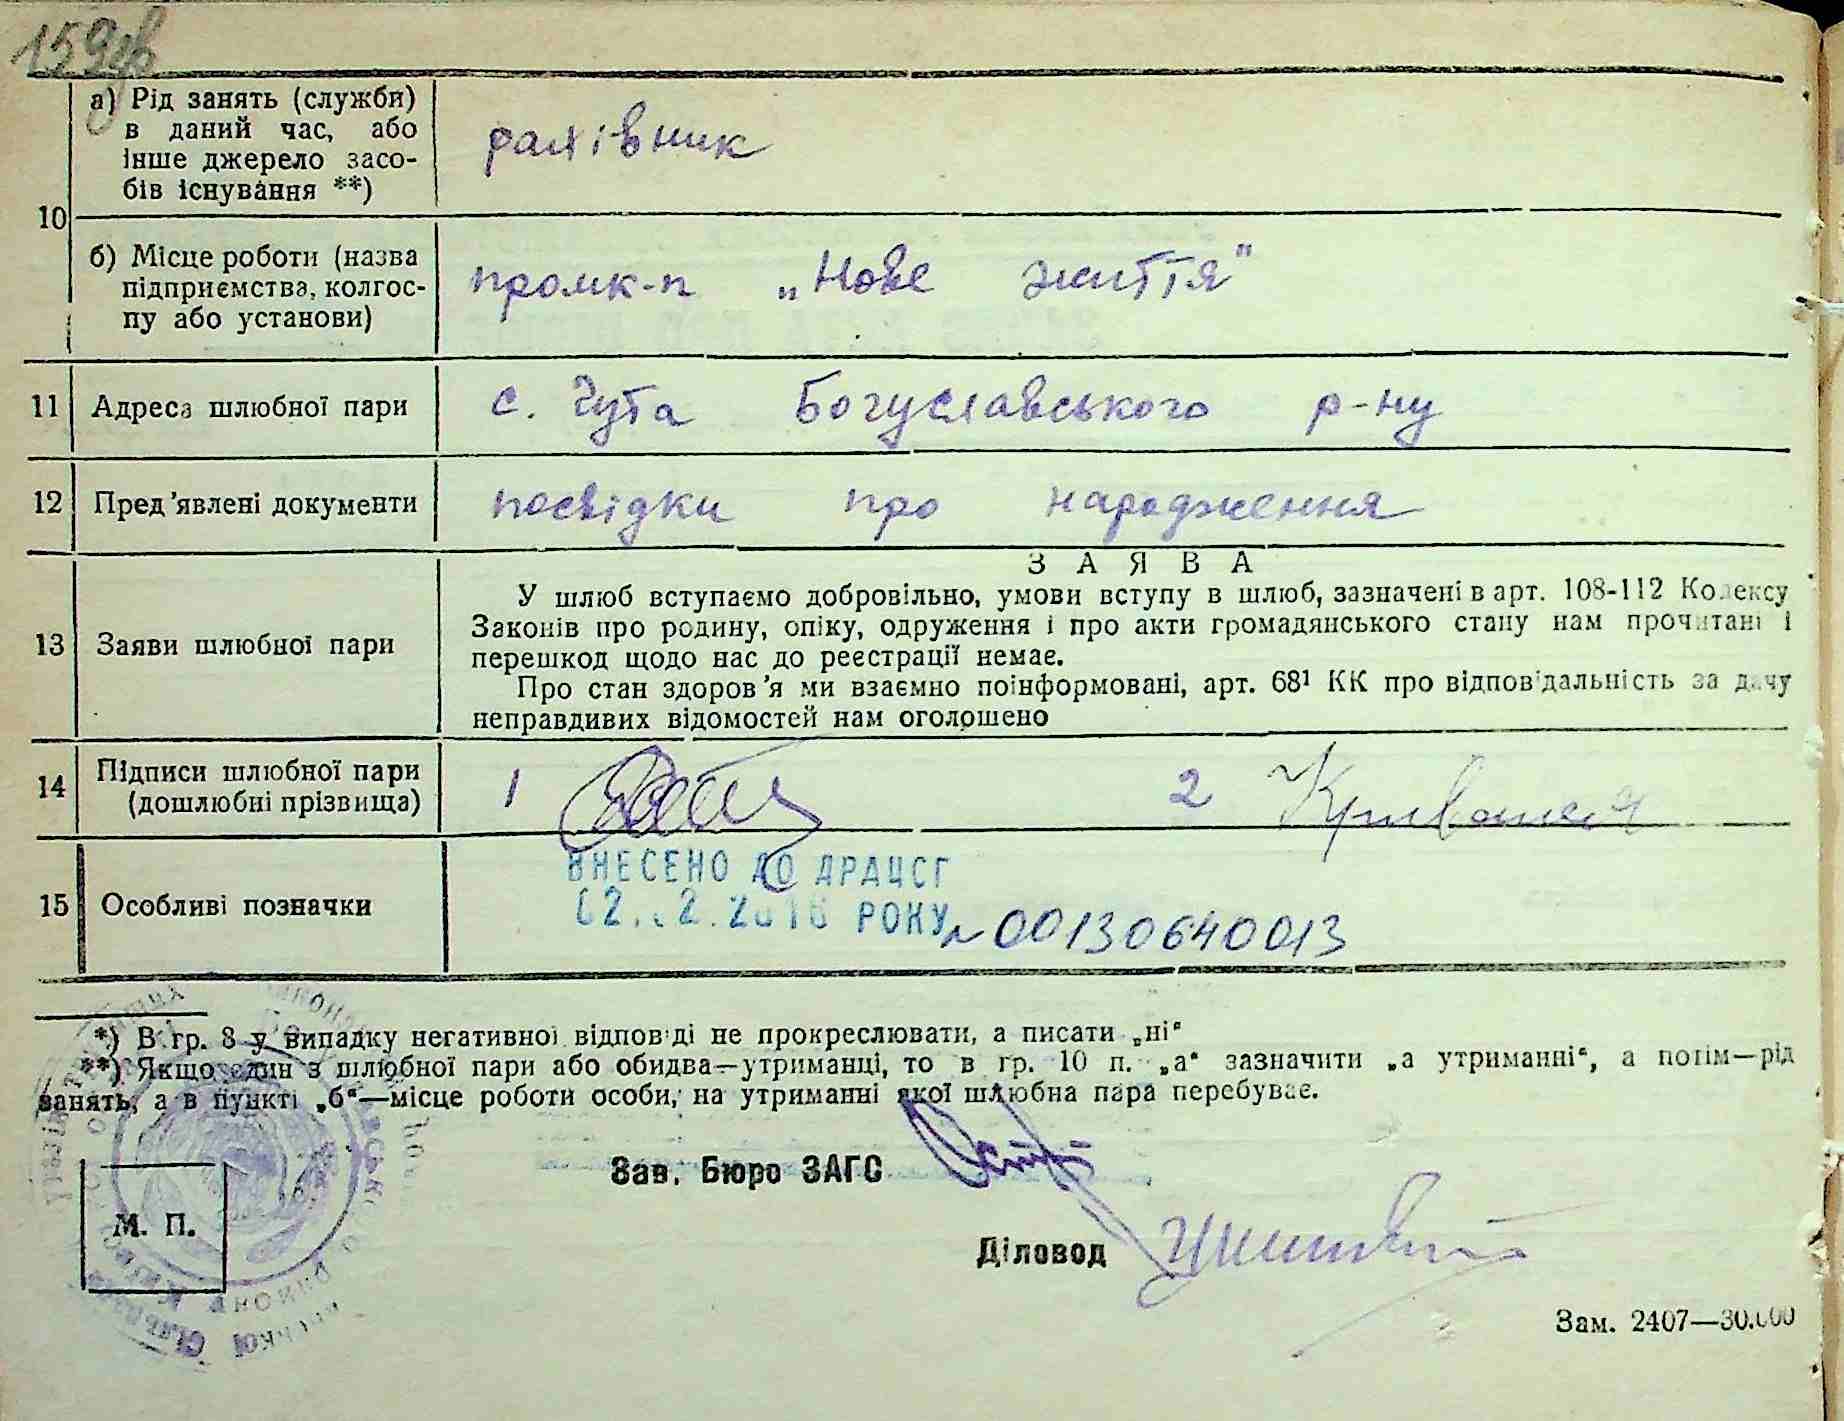 159 зв
10
а) Рід занять (служби)
в даний час, або
інше джерело засо-
бів існування **)
рахівник
б) Місце роботи (назва
підприємства, колгос-
пу або установи)
промк-п „Нове життя"
11 Адреса шлюбної пари с. Чута Богуславського р-ну
12 Пред'явлені документи посвідки про народження
13 Заяви шлюбної пари
ЗАЯВА
У шлюб вступаємо добровільно, умови вступу в шлюб, зазначені в арт. 108-112 Кодексу
Законів про родину, опіку, одруження і про акти громадянського стану нам прочитані і
перешкод щодо нас до реєстрації немає.
Про стан здоров'я ми взаємно поінформовані, арт. 68¹ КК про відповідальність за дачу
неправдивих відомостей нам оголошено
14 Підписи шлюбної пари
(дошлюбні прізвища)
1 2
15 Особливі позначки
ВНЕСЕНО ДО ДРАЦСГ
02.02.2016 РОКУ № 00130640013
*) В гр. 8 у випадку негативної відповіді не прокреслювати, а писати „ні"
**) Якщо один з шлюбної пари або обидва—утриманці, то в гр. 10 п. „а" зазначити „а утриманні", а потім—рід
занять, а в пункті „б"—місце роботи особи, на утриманні якої шлюбна пара перебуває.
Зав. Бюро ЗАГС
Діловод
М. П.
Зам. 2407—30.000